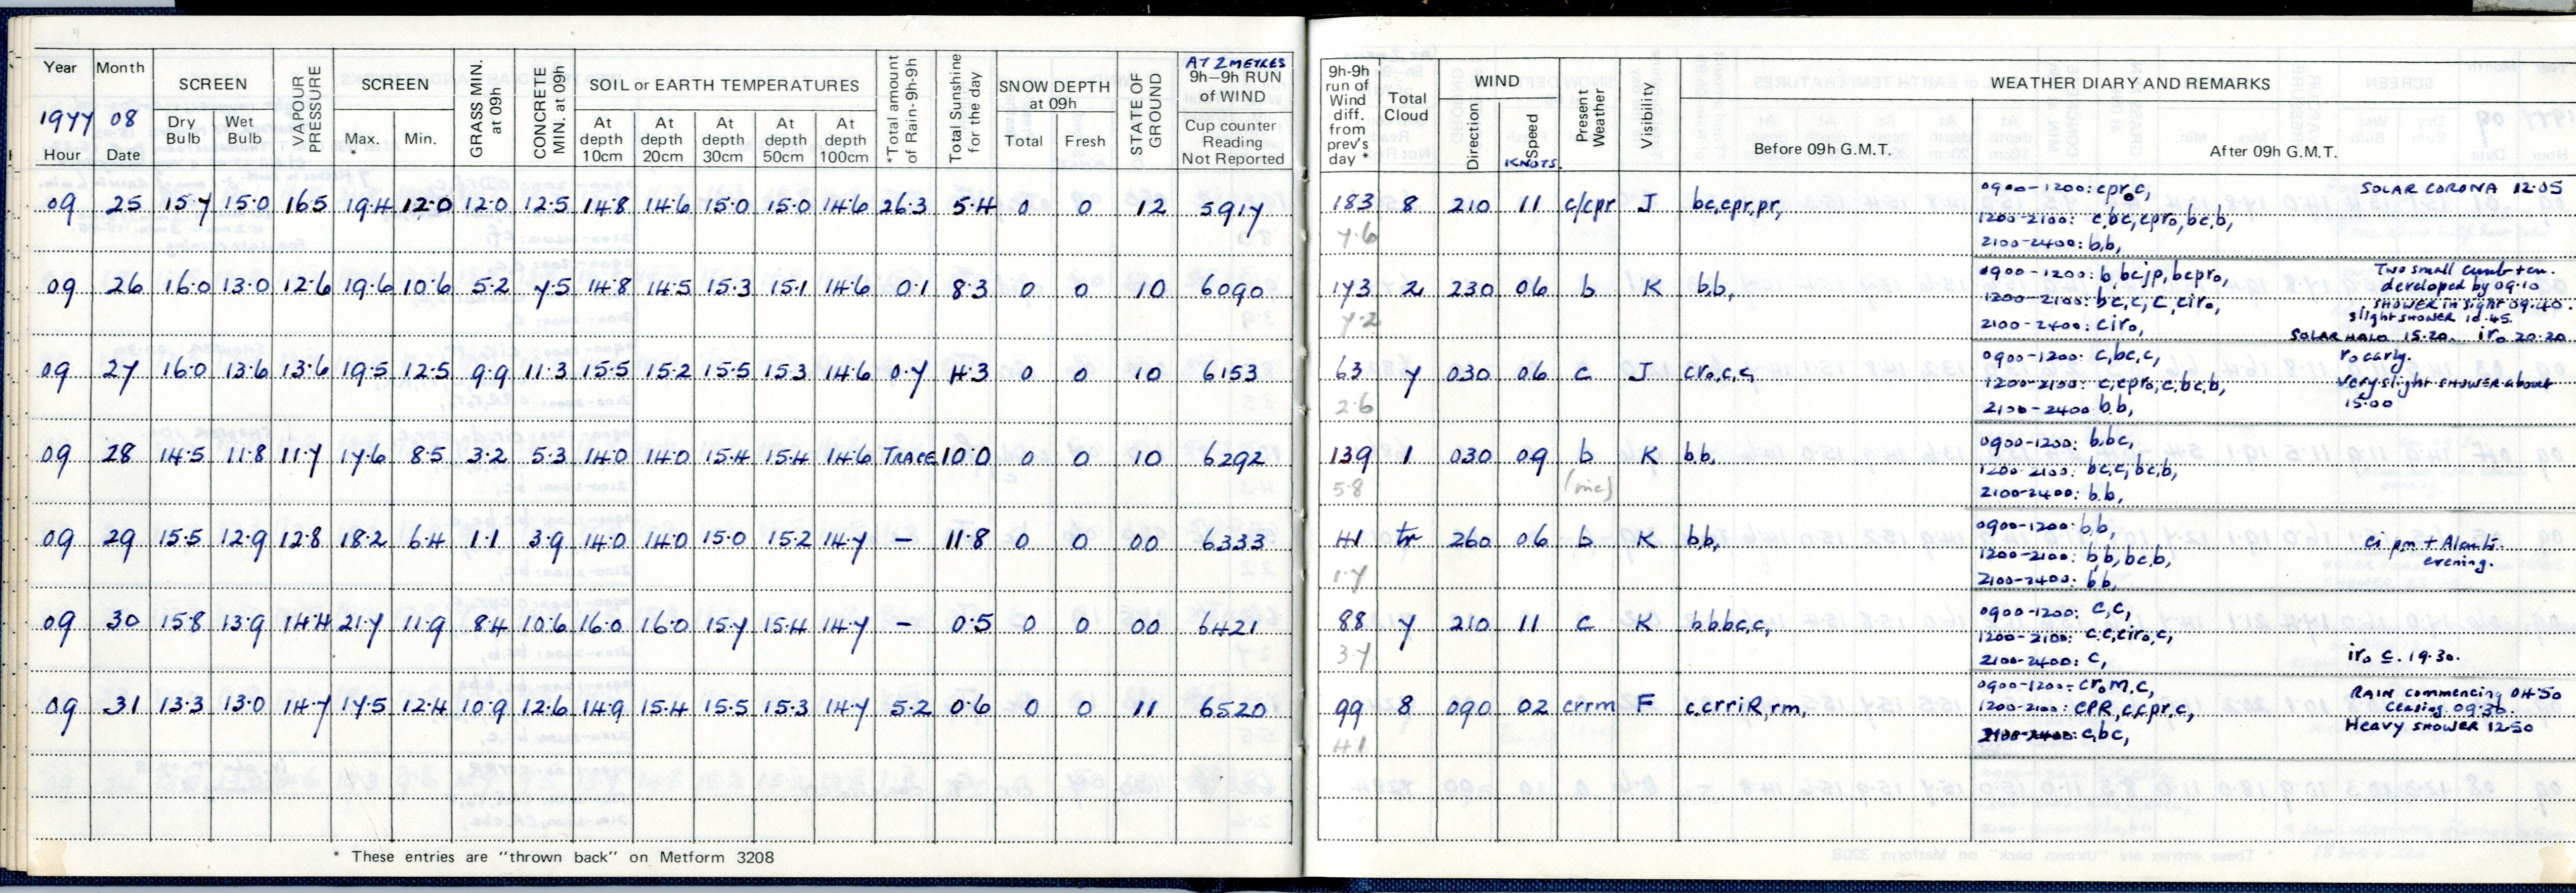 Year Month SCREEN VAPOUR PRESSURE SCREEN GRASS MIN. at 09h CONCRETE MIN. at 09h SOIL or EARTH TEMPERATURES *Total amount of Rain-9h-9h Total Sunshine for the day SNOW DEPTH at 09h STATE OF GROUND AT 2 METRES 9h–9h RUN of WIND
1977 08 Dry Bulb Wet Bulb Max. * Min. At depth 10cm At depth 20cm At depth 30cm At depth 50cm At depth 100cm Total Fresh Cup counter Reading Not Reported
Hour Date
09 25 15.7 15.0 16.5 19.4 12.0 12.0 12.5 14.8 14.6 15.0 15.0 14.6 26.3 5.4 0 0 12 5917
09 26 16.0 13.0 12.6 19.6 10.6 5.2 7.5 14.8 14.5 15.3 15.1 14.6 0.1 8.3 0 0 10 6090
09 27 16.0 13.6 13.6 19.5 12.5 9.9 11.3 15.5 15.2 15.5 15.3 14.6 0.7 4.3 0 0 10 6153
09 28 14.5 11.8 11.7 17.6 8.5 3.2 5.3 14.0 14.0 15.4 15.4 14.6 TRACE 10.0 0 0 10 6292
09 29 15.5 12.9 12.8 18.2 6.4 1.1 3.9 14.0 14.0 15.0 15.2 14.7 – 11.8 0 0 00 6333
09 30 15.8 13.9 14.4 21.7 11.9 8.4 10.6 16.0 16.0 15.7 15.4 14.7 – 0.5 0 0 00 6421
09 31 13.3 13.0 14.7 17.5 12.4 10.9 12.6 14.9 15.4 15.5 15.3 14.7 5.2 0.6 0 0 11 6520
* These entries are "thrown back" on Metform 3208
9h-9h run of Wind diff. from prev's day * Total Cloud WIND Present Weather Visibility WEATHER DIARY AND REMARKS
Direction Speed KNOTS. Before 09h G.M.T. After 09h G.M.T.
183 8 210 11 c/cpr J bc,cpr,pr, 0900-1200: cpr₀c, SOLAR CORONA 12.05
7.6 1200-2100: c,bc,cpr₀,bc,b,
2100-2400: b,b,
173 2 230 06 b K b,b, 0900-1200: b,bcjp,bcpr₀, Two small cumb + cu.
developed by 09.10
7.2 1200-2100: bc,c,c,cir₀, SHOWER in sight 09.40.
slight SHOWER 10.45.
2100-2400: cir₀, SOLAR HALO 15.20. ir₀ 20.20
63 7 030 06 c J cr₀,c,c, 0900-1200: c,bc,c, r₀ early.
2.6 1200-2100: c,cpr₀,c,bc,b, very slight SHOWER about
2100-2400 b,b, 15.00
139 1 030 09 b K b,b, 0900-1200: b,bc,
5.8 1200-2100: bc,c,bc,b,
2100-2400: b,b,
41 tr 260 06 b K b,b, 0900-1200: b,b,
1.7 1200-2100: b,b,bc,b, evening.
2100-2400: b,b,
88 7 210 11 c K b,b,bc,c, 0900-1200: c,c,
3.7 1200-2100: c,c,cir₀,c,
2100-2400: c, ir₀ c. 19.30.
99 8 090 02 crrm F c,crriR,rm, 0900-1200: cr₀m,c, RAIN commencing 04.50
4.1 1200-2100: cPR,c,cpr,c, ceasing 09.30.
2100-2400: c,bc, Heavy SHOWER 12.50